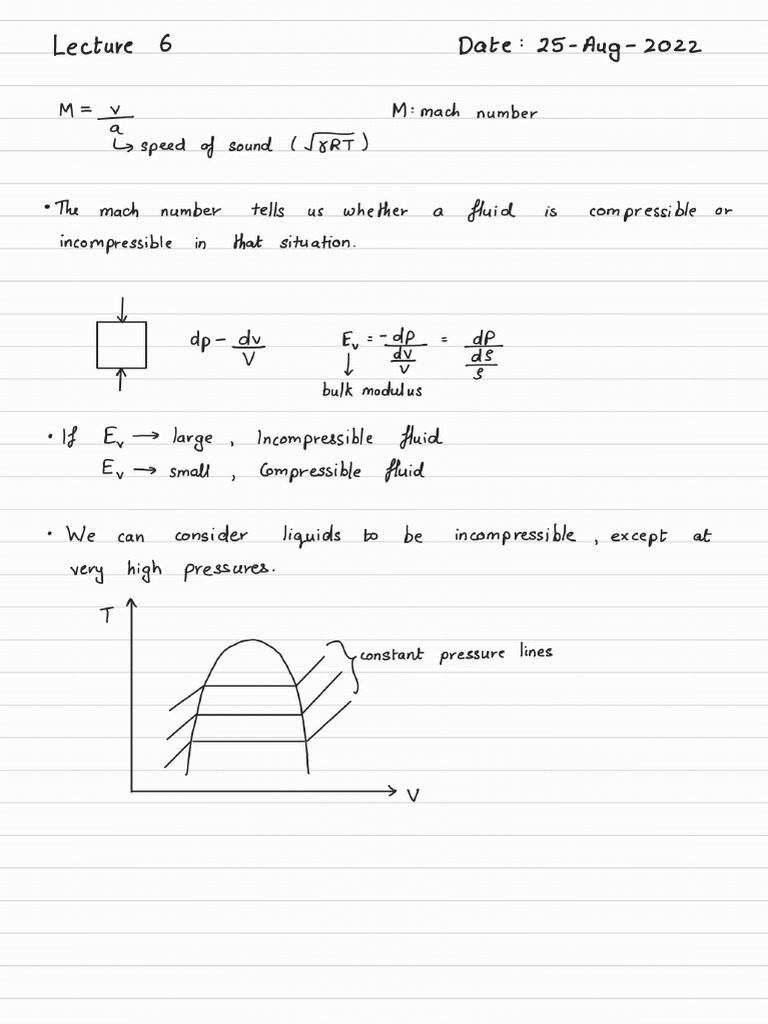 Lecture 6 Date: 25-Aug-2022
M = v/a M: mach number
↳ speed of sound (√γRT)
• The mach number tells us whether a fluid is compressible or
incompressible in that situation.
dp - dv/V Ev = -dp/(dv/V) = dP/(dρ/ρ)
↓
bulk modulus
• If Ev → large , Incompressible fluid
Ev → small , Compressible fluid
• We can consider liquids to be incompressible , except at
very high pressures.
T
constant pressure lines
V